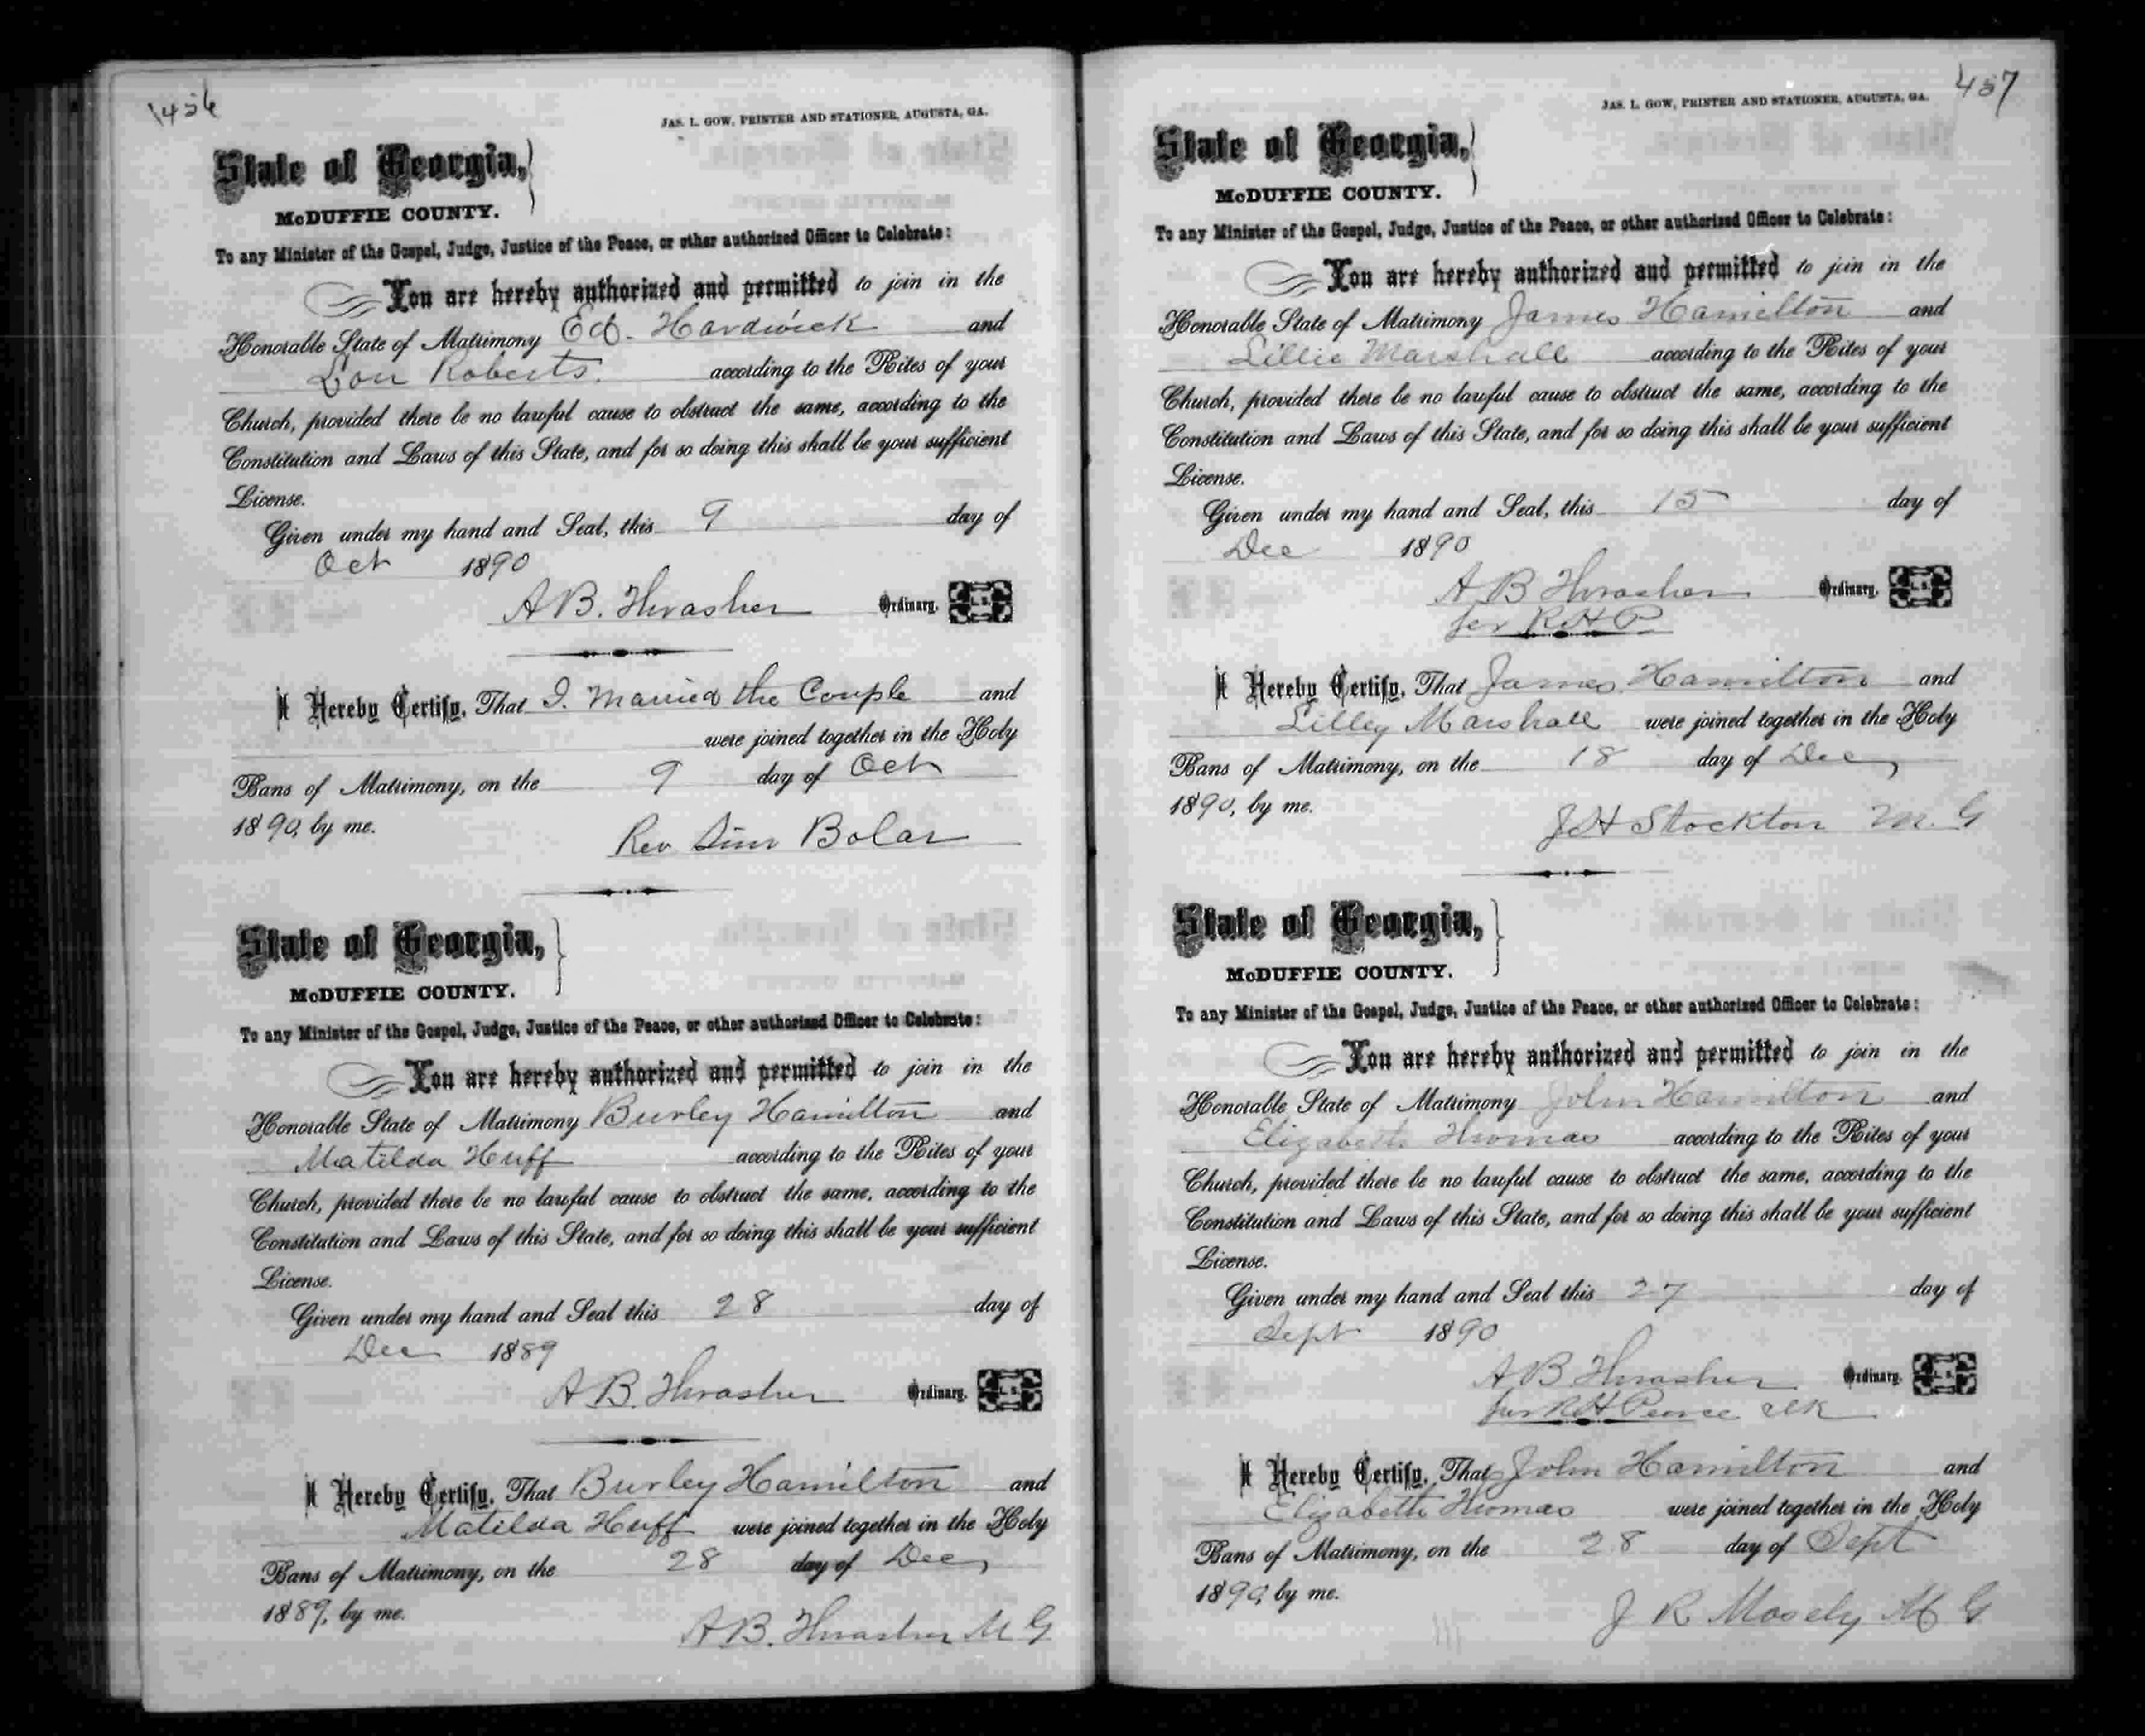 456
JAS. L. GOW, PRINTER AND STATIONER, AUGUSTA, GA.
State of Georgia,
McDUFFIE COUNTY.
To any Minister of the Gospel, Judge, Justice of the Peace, or other authorized Officer to Celebrate:
You are hereby authorized and permitted to join in the
Honorable State of Matrimony Ed. Hardwick and
Lou Roberts. according to the Rites of your
Church, provided there be no lawful cause to obstruct the same, according to the
Constitution and Laws of this State, and for so doing this shall be your sufficient
License.
Given under my hand and Seal, this 9 day of
Oct 1890
A B. Thrasher Ordinary. L. S.
I Hereby Certify, That I. Married the Couple and
were joined together in the Holy
Bans of Matrimony, on the 9 day of Oct
1890, by me.
Rev Sim Bolar
State of Georgia,
McDUFFIE COUNTY.
To any Minister of the Gospel, Judge, Justice of the Peace, or other authorized Officer to Celebrate:
You are hereby authorized and permitted to join in the
Honorable State of Matrimony Burley Hamilton and
Matilda Huff according to the Rites of your
Church, provided there be no lawful cause to obstruct the same, according to the
Constitution and Laws of this State, and for so doing this shall be your sufficient
License.
Given under my hand and Seal this 28 day of
Dec 1889
A B. Thrasher Ordinary. L. S.
I Hereby Certify, That Burley Hamilton and
Matilda Huff were joined together in the Holy
Bans of Matrimony, on the 28 day of Dec
1889, by me.
A B. Thrasher M G
457
JAS. L. GOW, PRINTER AND STATIONER, AUGUSTA, GA.
State of Georgia,
McDUFFIE COUNTY.
To any Minister of the Gospel, Judge, Justice of the Peace, or other authorized Officer to Celebrate:
You are hereby authorized and permitted to join in the
Honorable State of Matrimony James Hamilton and
Lillie Marshall according to the Rites of your
Church, provided there be no lawful cause to obstruct the same, according to the
Constitution and Laws of this State, and for so doing this shall be your sufficient
License.
Given under my hand and Seal, this 15 day of
Dec 1890
A B Thrasher Ordinary. L. S.
per R H P
I Hereby Certify, That James Hamilton and
Lilley Marshall were joined together in the Holy
Bans of Matrimony, on the 18 day of Dec
1890, by me.
J H Stockton M. G
State of Georgia,
McDUFFIE COUNTY.
To any Minister of the Gospel, Judge, Justice of the Peace, or other authorized Officer to Celebrate:
You are hereby authorized and permitted to join in the
Honorable State of Matrimony John Hamilton and
Elizabeth Thomas according to the Rites of your
Church, provided there be no lawful cause to obstruct the same, according to the
Constitution and Laws of this State, and for so doing this shall be your sufficient
License.
Given under my hand and Seal this 27 day of
Sept 1890
A B Thrasher Ordinary. L. S.
per R H Pearce clk
I Hereby Certify, That John Hamilton and
Elizabeth Thomas were joined together in the Holy
Bans of Matrimony, on the 28 day of Sept
1890, by me.
J R Mosely M G